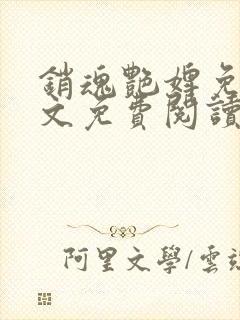 銷魂艷婢免
文免費閱讀
阿里文學/雲端